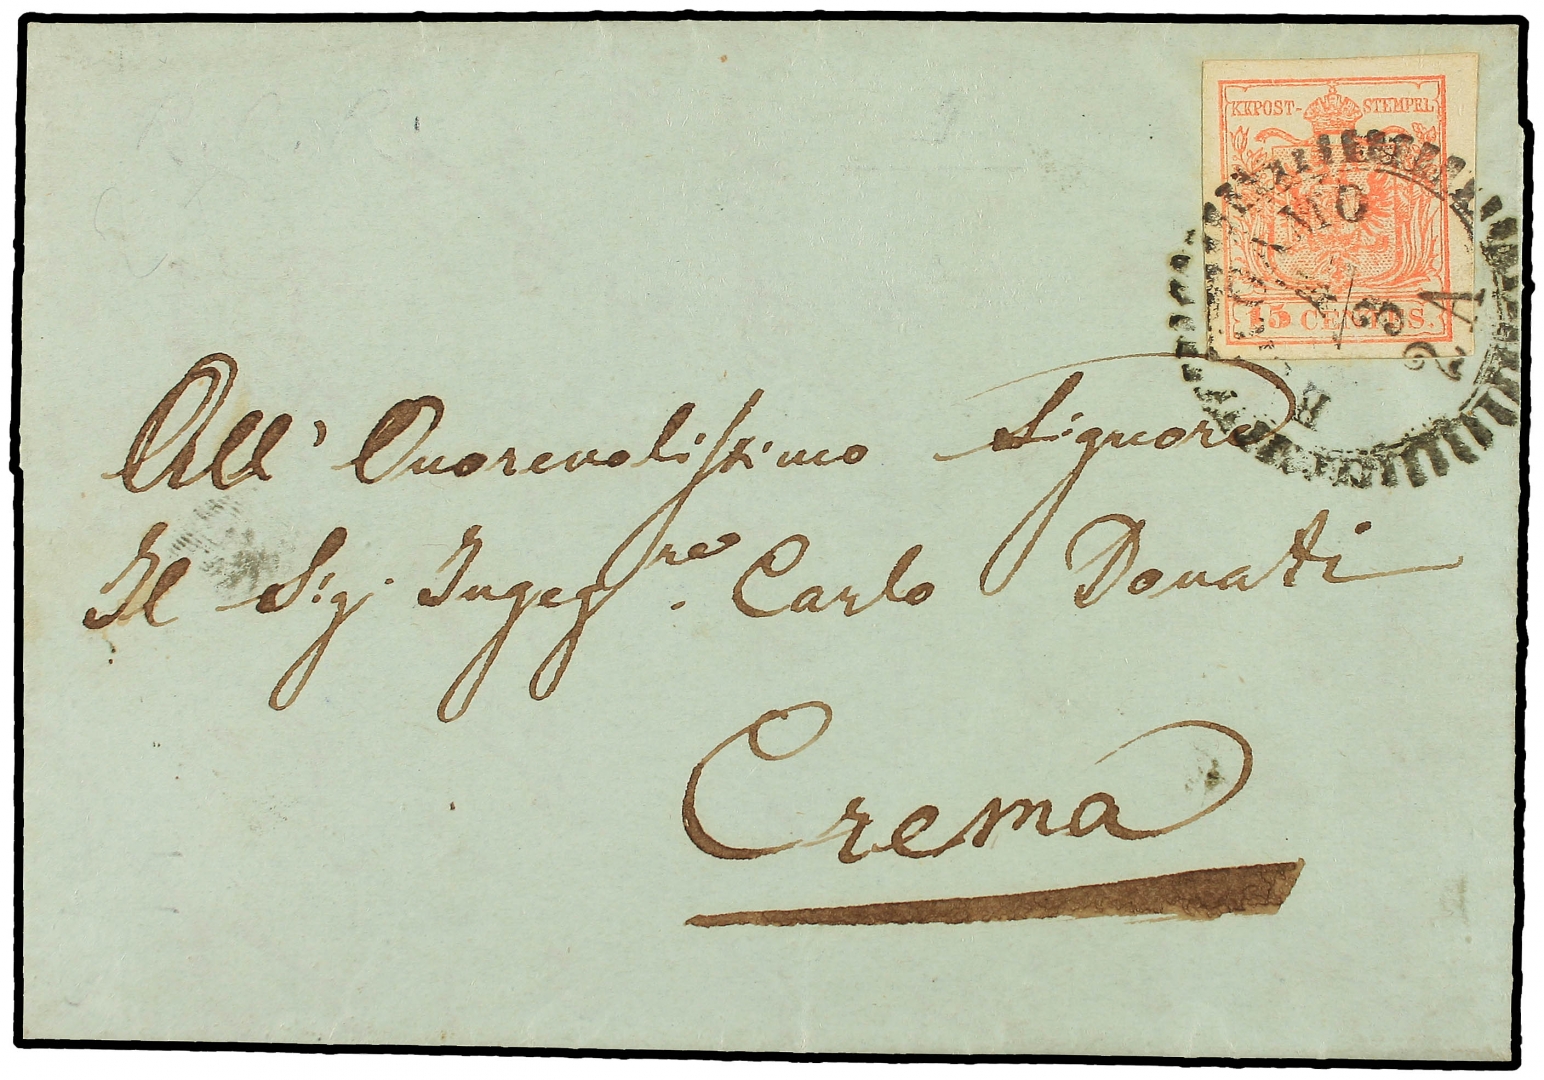 KKPOST-STEMPEL
15 CENTES.
All' Onorevolissimo Signore
Il Sig. Ingeg.re Carlo Donati
Crema